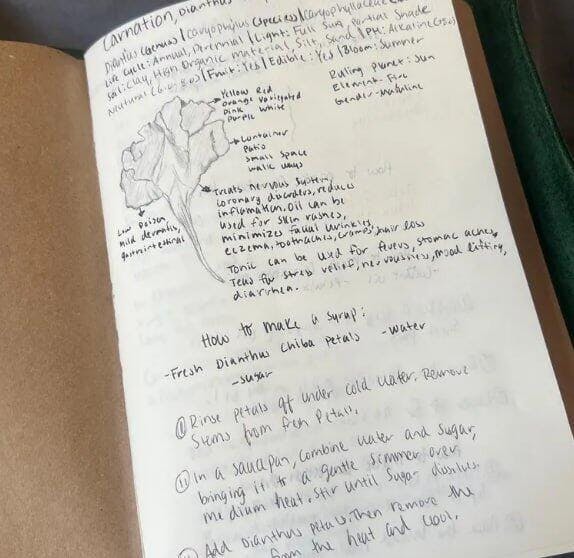 Carnation, Dianthus
Diantus (Genus) | Caryophylus (Species) | Caryophyllaceae
Life Cycle: Annual, Perennial | Light: Full Sun, Partial Shade
Soil: Clay, High Organic material, Silt, Sand | PH: Alkaline
Neutral (6.0-8.0) | Fruit: Yes | Edible: Yes | Bloom: Summer
Yellow Red
orange variegated
Pink
Purple White
Ruling Planet: Sun
Element: Fire
Gender: Masculine
Container
Patio
Small Space
walk ways
Low Poison
mild dermatitis,
gastrointestinal
Treats nervous system,
coronary disorders, reduces
inflamation. Oil can be
used for skin rashes,
minimizes facial wrinkles,
eczema, toothaches, cramps, hair loss
Tonic can be used for fevers, stomac aches,
Teas for stress relief, nervousness, mood lifting,
diarrhea.
How to make a syrup:
-Fresh Dianthus Chiba Petals -water
-sugar
① Rinse petals off under cold water. Remove
Stems from fresh Petals.
⑪ In a saucepan, combine water and sugar,
bringing it to a gentle simmer over
medium heat. Stir until sugar dissolves.
Add Dianthus petals. Then remove the
from the heat and cool.